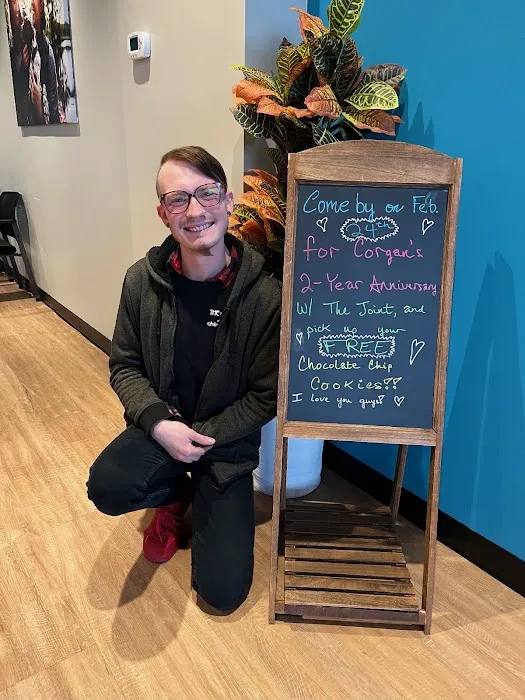 Come by on Feb.
24th
for Corgan's
2-Year Anniversary
W/ The Joint, and
pick up your
FREE
Chocolate Chip
Cookies!!
I love you guys!